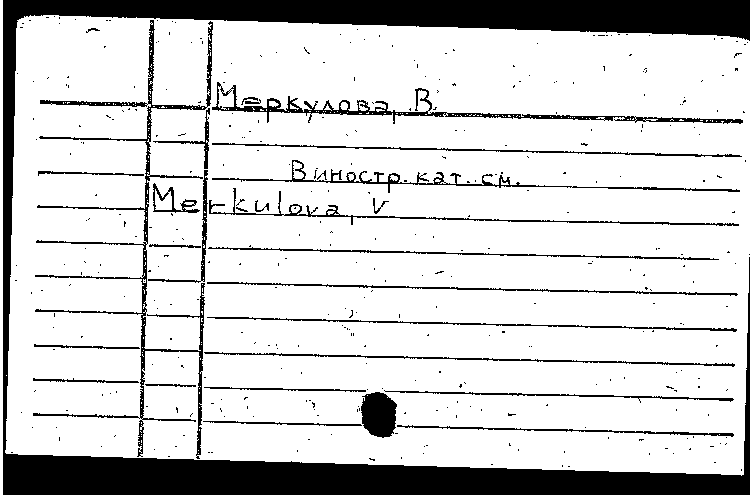 Меркулова, В.
В иностр. кат. см.
Merkulova, V